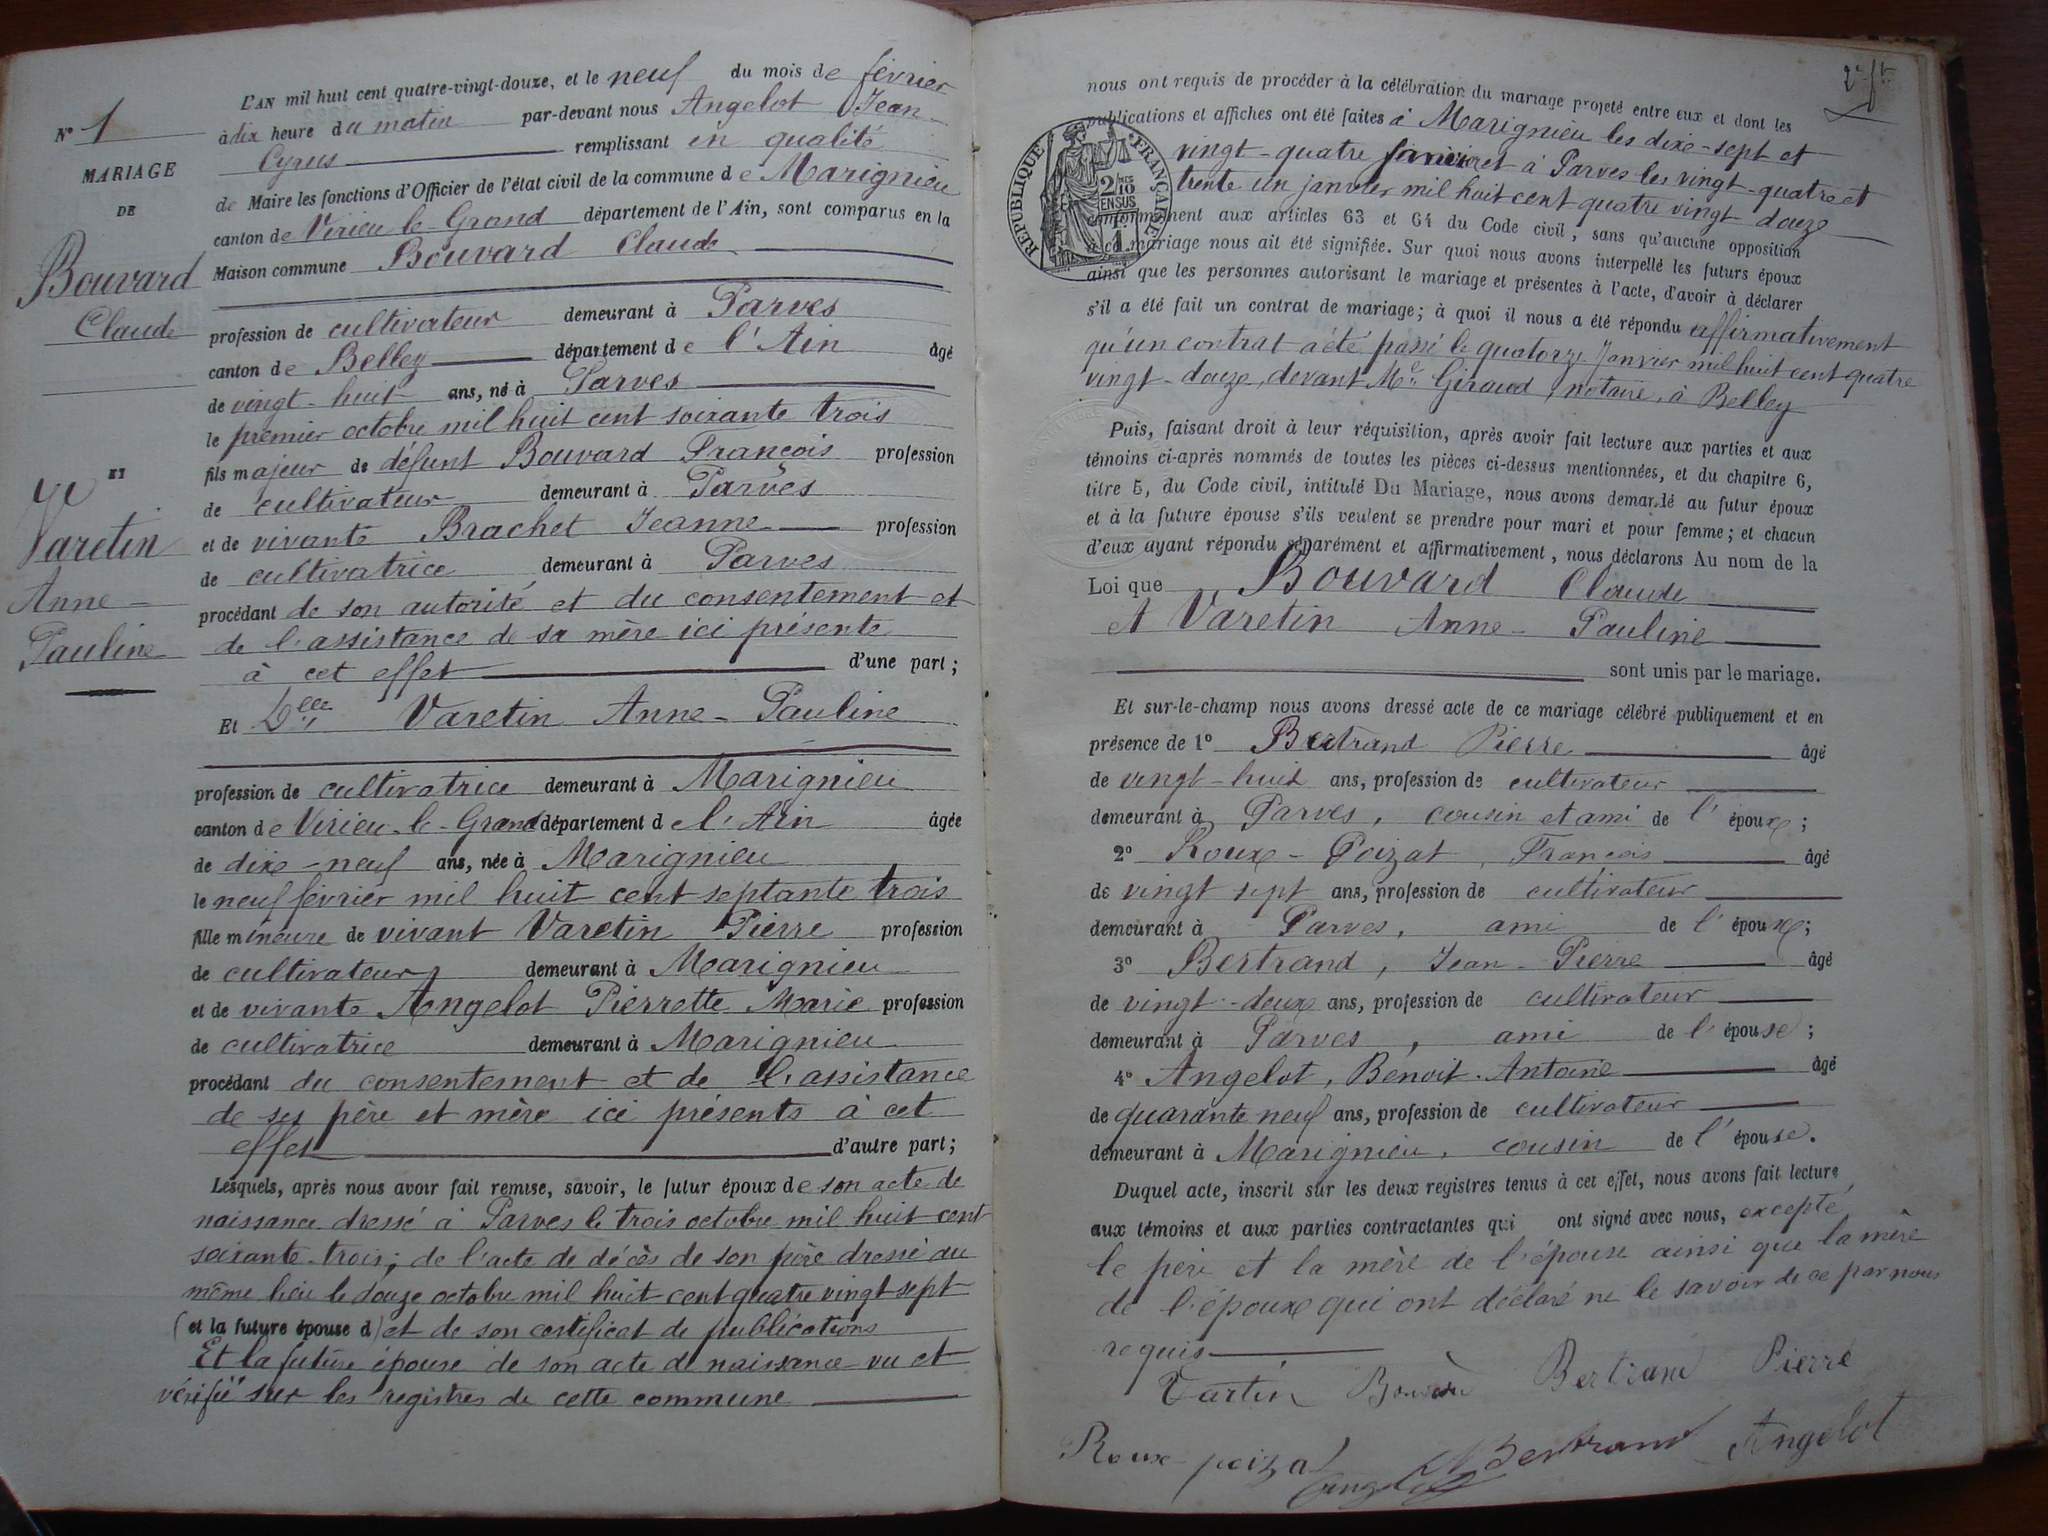 N° 1
MARIAGE
DE
Bouvard
Claude
ET
Varetin
Anne-
Pauline
L'AN mil huit cent quatre-vingt-douze, et le neuf du mois de février
à dix heure du matin par-devant nous Angelot Jean-
Cyrus remplissant en qualité
de Maire les fonctions d'Officier de l'état civil de la commune de Marignieu
canton de Virieu-le-Grand département de l'Ain, sont comparus en la
Maison commune Bouvard Claude
profession de cultivateur demeurant à Parves
canton de Belley département de l'Ain âgé
de vingt-huit ans, né à Parves
le premier octobre mil huit cent soixante trois
fils majeur de défunt Bouvard François profession
de cultivateur demeurant à Parves
et de vivante Brachet Jeanne profession
de cultivatrice demeurant à Parves
procédant de son autorité et du consentement et
de l'assistance de sa mère ici présente
à cet effet d'une part;
Et Delle Varetin Anne-Pauline
profession de cultivatrice demeurant à Marignieu
canton de Virieu-le-Grand département de l'Ain âgée
de dixe-neuf ans, née à Marignieu
le neuf février mil huit cent septante trois
fille mineure de vivant Varetin Pierre profession
de cultivateur demeurant à Marignieu
et de vivante Angelot Pierrette Marie profession
de cultivatrice demeurant à Marignieu
procédant du consentement et de l'assistance
de ses père et mère ici présents à cet
effet d'autre part;
Lesquels, après nous avoir fait remise, savoir, le futur époux de son acte de
naissance dressé à Parves le trois octobre mil huit cent
soixante-trois; de l'acte de décès de son père dressé au
même lieu le douze octobre mil huit cent quatre vingt sept
(et la future épouse d) et de son certificat de publications
Et la future épouse de son acte de naissance vu et
vérifié sur les registres de cette commune
nous ont requis de procéder à la célébration du mariage projeté entre eux et dont les
publications et affiches ont été faites à Marignieu les dixe-sept et
vingt-quatre janvier et à Parves les vingt-quatre et
trente un janvier mil huit cent quatre vingt-douze
RÉPUBLIQUE FRANÇAISE
2/10
EN SUS
1
conformément aux articles 63 et 64 du Code civil, sans qu'aucune opposition
à ce mariage nous ait été signifiée. Sur quoi nous avons interpellé les futurs époux
ainsi que les personnes autorisant le mariage et présentes à l'acte, d'avoir à déclarer
s'il a été fait un contrat de mariage; à quoi il nous a été répondu affirmativement
qu'un contrat a été passé le quatorze Janvier mil huit cent quatre
vingt-douze, devant Me Giraud, notaire, à Belley
Puis, faisant droit à leur réquisition, après avoir fait lecture aux parties et aux
témoins ci-après nommés de toutes les pièces ci-dessus mentionnées, et du chapitre 6,
titre 5, du Code civil, intitulé Du Mariage, nous avons demandé au futur époux
et à la future épouse s'ils veulent se prendre pour mari et pour femme; et chacun
d'eux ayant répondu séparément et affirmativement, nous déclarons Au nom de la
Loi que Bouvard Claude
et Varetin Anne-Pauline
sont unis par le mariage.
Et sur-le-champ nous avons dressé acte de ce mariage célébré publiquement et en
présence de 1° Bertrand Pierre âgé
de vingt-huit ans, profession de cultivateur
demeurant à Parves, cousin et ami de l'épouxe;
2° Roux-Poizat, François âgé
de vingt sept ans, profession de cultivateur
demeurant à Parves, ami de l'épouxe;
3° Bertrand, Jean-Pierre âgé
de vingt-deuxe ans, profession de cultivateur
demeurant à Parves, ami de l'épouse;
4° Angelot, Benoit-Antoine âgé
de quarante neuf ans, profession de cultivateur
demeurant à Marignieu, cousin de l'épouse.
Duquel acte, inscrit sur les deux registres tenus à cet effet, nous avons fait lecture
aux témoins et aux parties contractantes qui ont signé avec nous, excepté
le père et la mère de l'épouse ainsi que la mère
de l'épouxe qui ont déclaré ne le savoir de ce par nous
requis
Vartin Bouvard Bertrand Pierre
Roux-poizat Bertrand Angelot